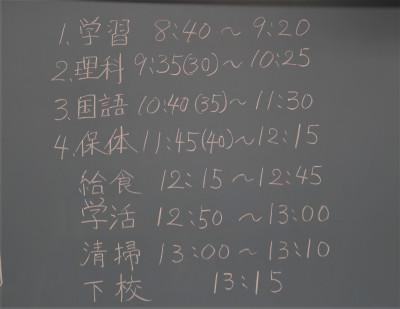 1. 学習 8:40 ～ 9:20
2. 理科 9:35(30)～ 10:25
3. 国語 10:40 (35)～ 11:30
4. 保体 11:45(40)～12:15
給食 12:15 ～12:45
学活 12:50 ～13:00
清掃 13:00～13:10
下校 13:15